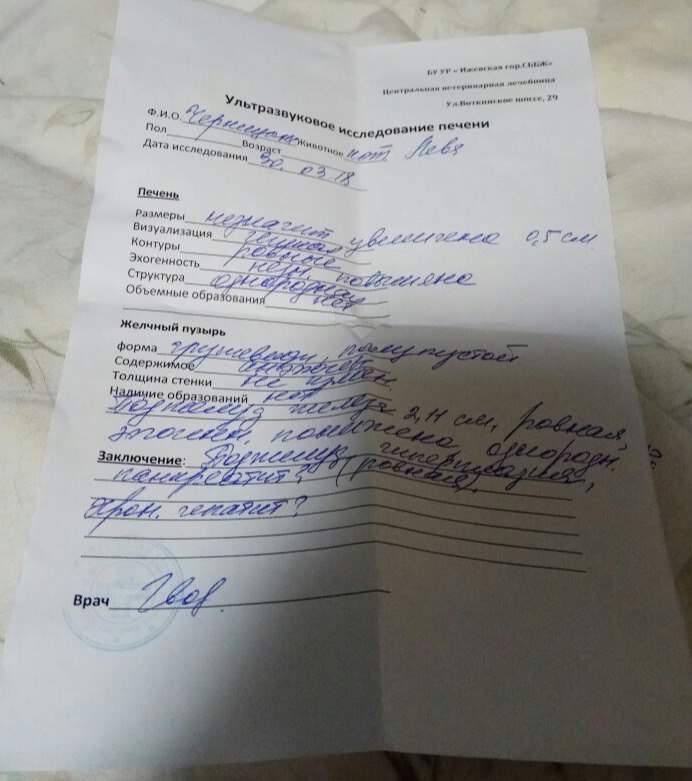 БУ УР « Ижевская гор.СББЖ»
Центральная ветеринарная лечебница
Ул.Воткинское шоссе, 29
Ультразвуковое исследование печени
Ф.И.О. Животное кот Лева
Пол Возраст
Дата исследования 30.03 18
Печень
Размеры незначит увеличена 0,5 см
Визуализация
Контуры ровные
Эхогенность незн. повышена
Структура однородная
Объемные образования нет
Желчный пузырь
форма грушевидн, полупустой
Содержимое
Толщина стенки не измен
Наличие образований нет
Поджелуд желез 2,11 см, ровная,
эхогенн. понижена однородн.
Заключение: Поджелуд
панкреатит? (ровные).
Хрон. гепатит?
Врач